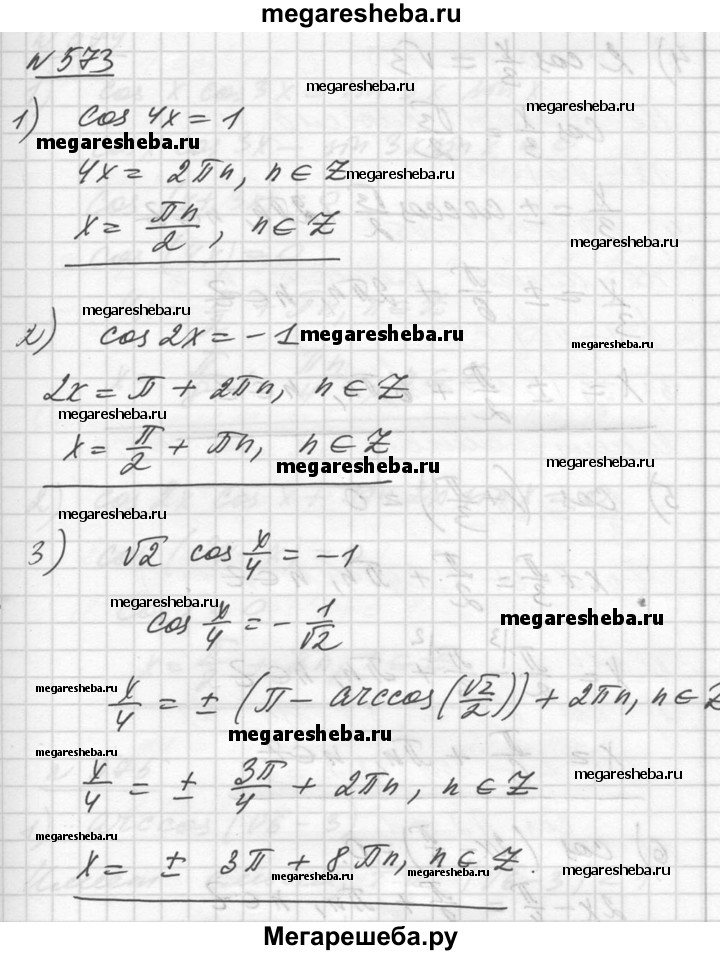 megaresheba.ru
№ 573
megaresheba.ru
1) cos 4x = 1
megaresheba.ru
megaresheba.ru
4x = 2πn, n ∈ Z
megaresheba.ru
x = πn/2, n ∈ Z
megaresheba.ru
megaresheba.ru
2) cos 2x = -1
megaresheba.ru
megaresheba.ru
2x = π + 2πn, n ∈ Z
megaresheba.ru
x = π/2 + πn, n ∈ Z
megaresheba.ru
megaresheba.ru
megaresheba.ru
3) √2 cos x/4 = -1
megaresheba.ru
cos x/4 = - 1/√2
megaresheba.ru
megaresheba.ru
x/4 = ± (π - arccos(√2/2)) + 2πn, n ∈ Z
megaresheba.ru
megaresheba.ru
x/4 = ± 3π/4 + 2πn, n ∈ Z
megaresheba.ru
megaresheba.ru
x = ± 3π + 8πn, n ∈ Z.
megaresheba.ru
megaresheba.ru
megaresheba.ru
Мегарешеба.ру